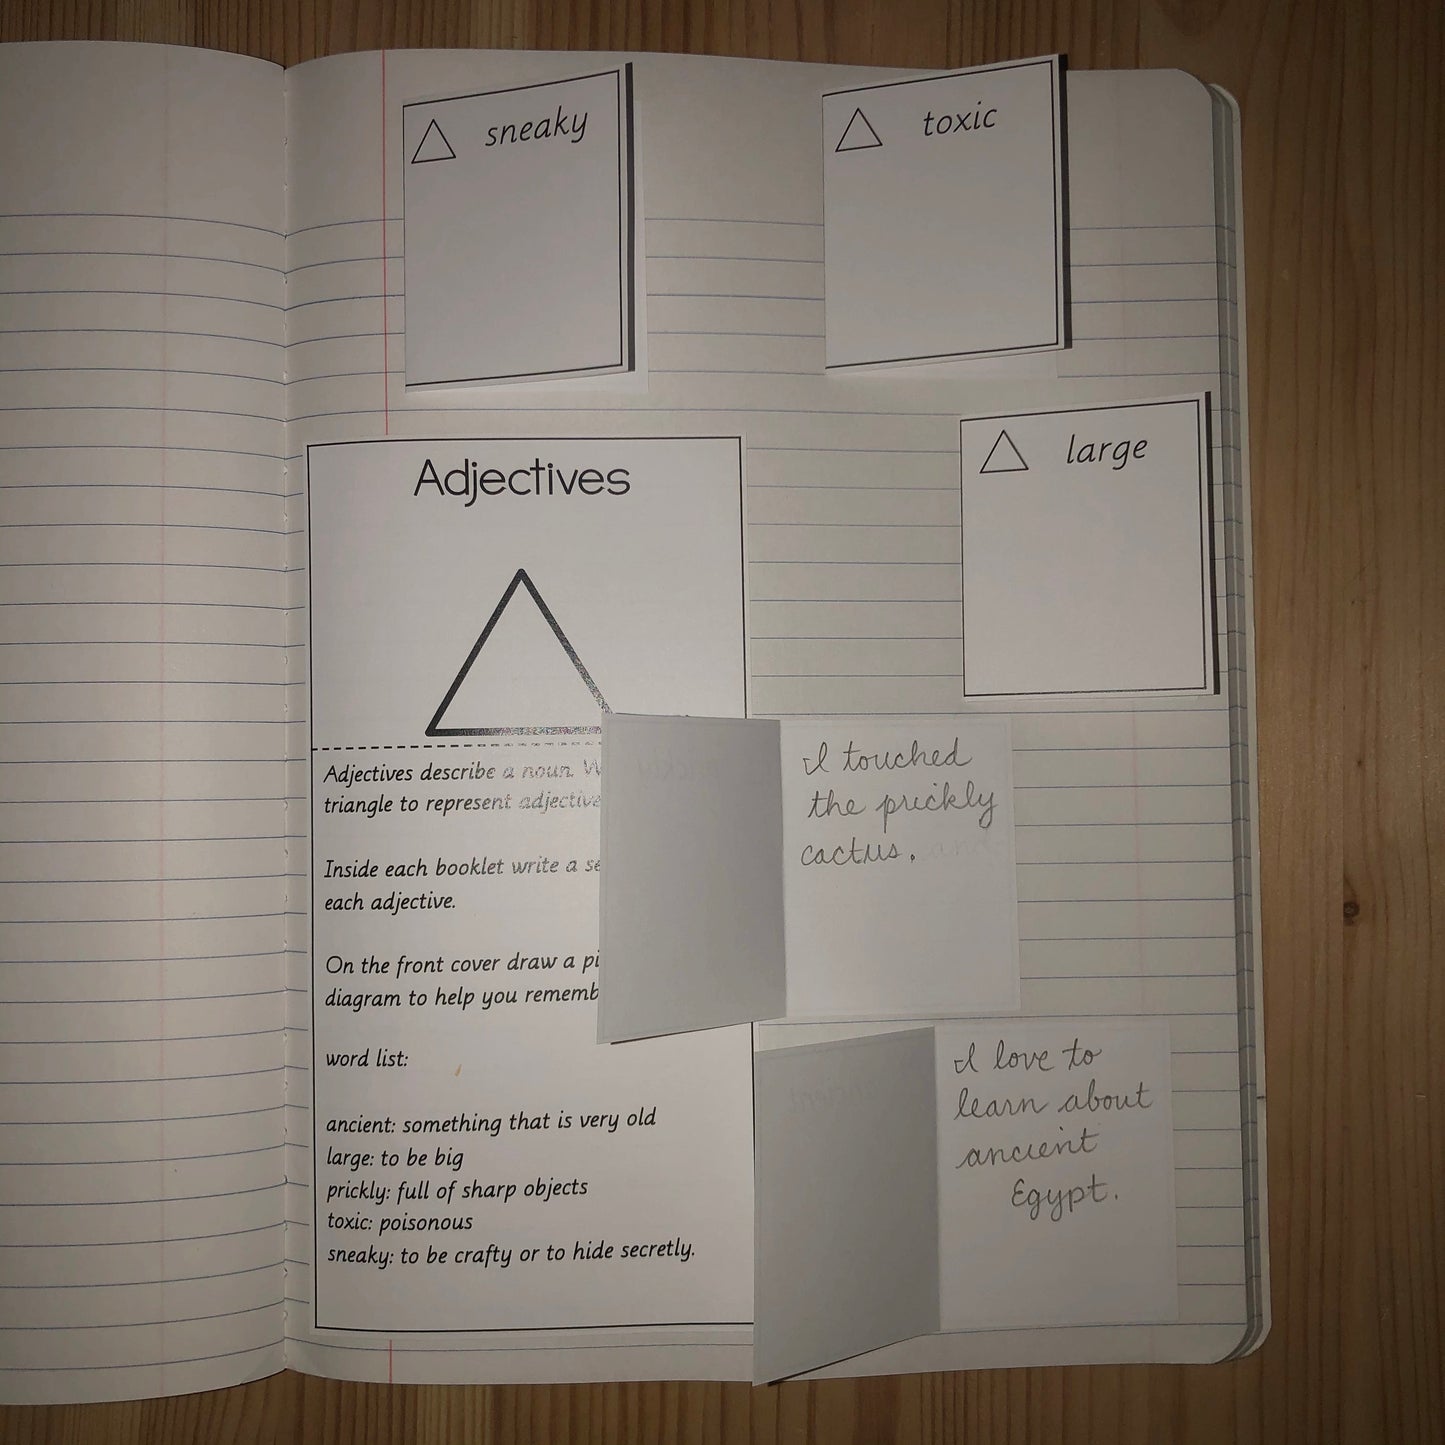 sneaky
toxic
large
Adjectives
Adjectives describe a noun. W
triangle to represent adjective
Inside each booklet write a se
each adjective.
On the front cover draw a pi
diagram to help you rememb
word list:
ancient: something that is very old
large: to be big
prickly: full of sharp objects
toxic: poisonous
sneaky: to be crafty or to hide secretly.
I touched
the prickly
cactus.
I love to
learn about
ancient
Egypt.